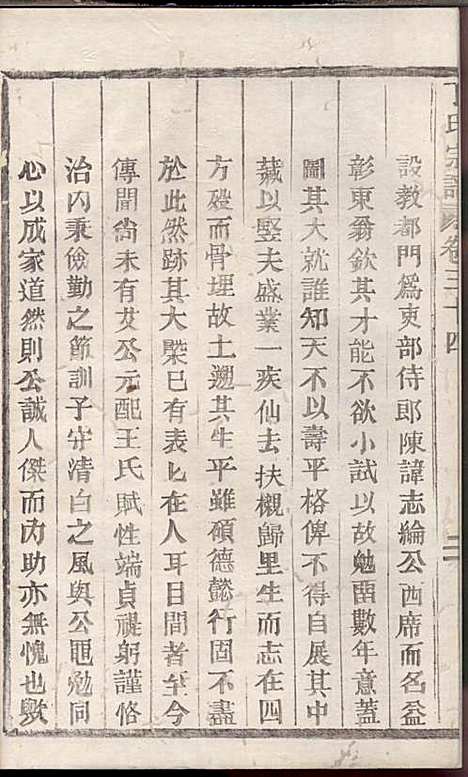 丁氏宗譜 卷三十四 二
設教都門爲吏部侍郎陳諱志綸公西席而名益
彰東翁欽其才能不欲小試以故勉畱數年意蓋
圖其大就誰知天不以壽平格俾不得自展其中
藏以竪夫盛業一疾仙去扶櫬歸里生而志在四
方殁而骨埋故土遡其生平雖碩德懿行固不盡
於此然跡其大槩已有表匕在人耳目間者至今
傳聞尙未有艾公元配王氏賦性端貞禔躬謹恪
治內秉儉勤之節訓子守清白之風與公黽勉同
心以成家道然則公誠人傑而內助亦無愧也歟